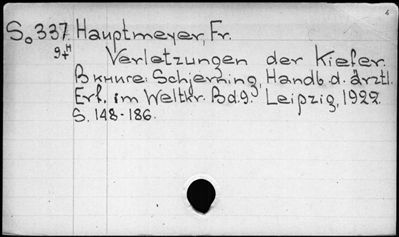 So 337 Hauptmeyer, Fr.
9+H Verletzungen der Kiefer.
В книге: Schjerning, Handb. d. ärztl.
Erf. im Weltkr. Bd. 9. Leipzig, 1922.
S. 148-186.